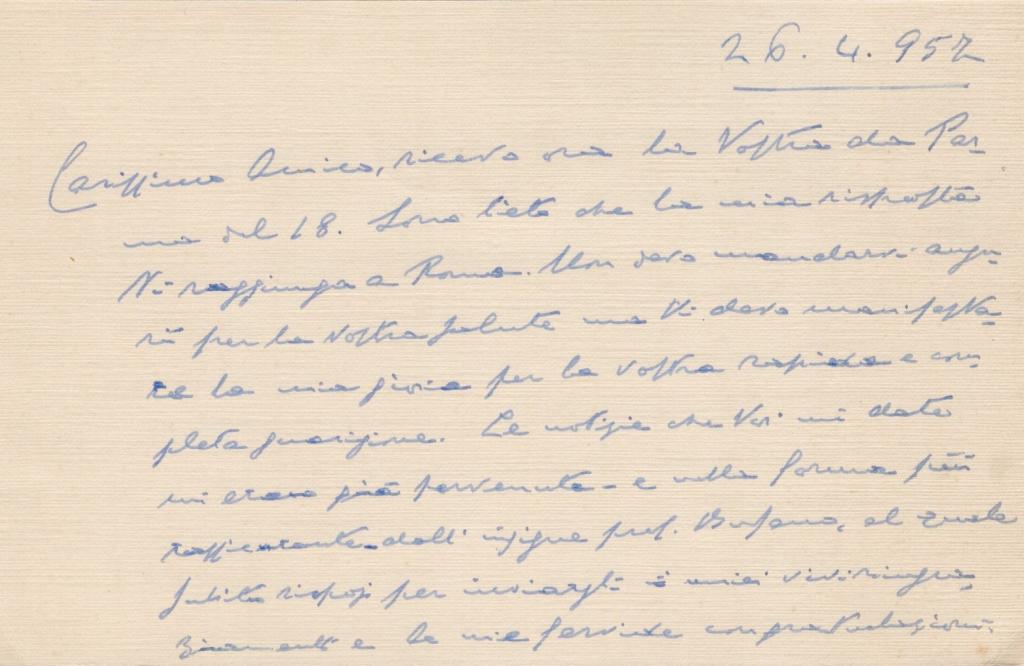 26.4.952
Carissimo Amico, ricevo ora la Vostra da Par-
ma del 18. Sono lieto che la mia risposta
Vi raggiunga a Roma. Non devo mandarvi augu-
rii per la Vostra salute ma Vi devo manifesta-
re la mia gioia per la Vostra rapida e com-
pleta guarigione. Le notizie che Voi mi date
mi erano già pervenute - e nella forma più
rassicurante - dall'insigne prof. Bufano, al quale
subito risposi per inviargli i miei vivi ringra-
ziamenti e le mie fervide congratulazioni.